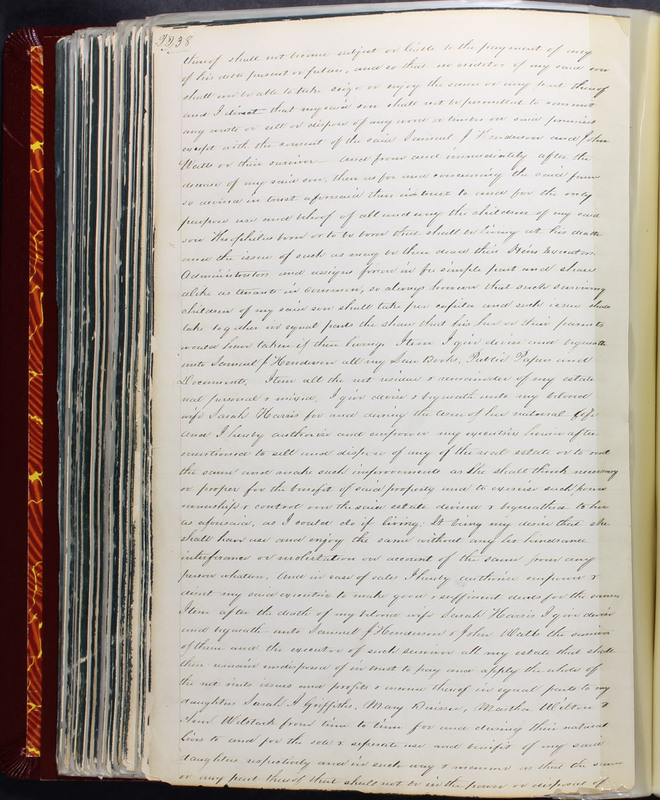 238
thereof shall not become subject or liable to the payment of any
of his debts present or future, and so that no creditor of my said son
shall ever be able to take seize or enjoy the same or any part thereof
and I direct that my said son shall not be permitted to commit
any waste or sell or dispose of any wood or timber on said premises
except with the consent of the said Samuel J Henderson and John
Watts or their survivor And from and immediately after the
decease of my said son, then as for and concerning the said farm
so devised in trust aforesaid then in trust to and for the only
purpose use and behoof of all and every the children of my said
son Theophilus born or to be born that shall be living at his death
and the issue of such as may be then dead their Heirs Executors
Administrators and assigns forever in fee simple part and share
alike as tenants in common, so always however that such surviving
children of my said son shall take per capita and such issue shall
take together in equal parts the share that his her or their parents
would have taken if then living. Item I give devise and bequeath
unto Samuel J Henderson all my Law Books, Public Papers and
Documents. Item all the rest residue & remainder of my estate
real personal & mixed, I give devise & bequeath unto my beloved
wife Sarah Harris for and during the term of her natural life
and I hereby authorize and empower my executrix herein after
mentioned to sell and dispose of any of the real estate or to rent
the same and make such improvements as she shall think necessary
or proper for the benefit of said property and to exercise such power
ownership & control over the said estate devised & bequeathed to her
as aforesaid, as I could do if living. It being my desire that she
shall have use and enjoy the same without any let hindrance
interference or molestation on account of the same from any
person whatsoever. And in case of sales I hereby authorize empower &
direct my said executrix to make good & sufficient deeds for the same
Item after the death of my beloved wife Sarah Harris I give devise
and bequeath unto Samuel J Henderson & John Watts the survivor
of them and the executor of such survivor all my estate that shall
then remain undisposed of in trust to pay and apply the whole of
the net rents issues and profits & income thereof in equal parts to my
daughters Sarah A Griffiths, Mary, Martha Wilson &
Ann from time to time for and during their natural
lives to and for the sole & seperate use and benefit of my said
daughters respectively and in such way & manner so that the same
or any part thereof that shall not be in the power or disposal of